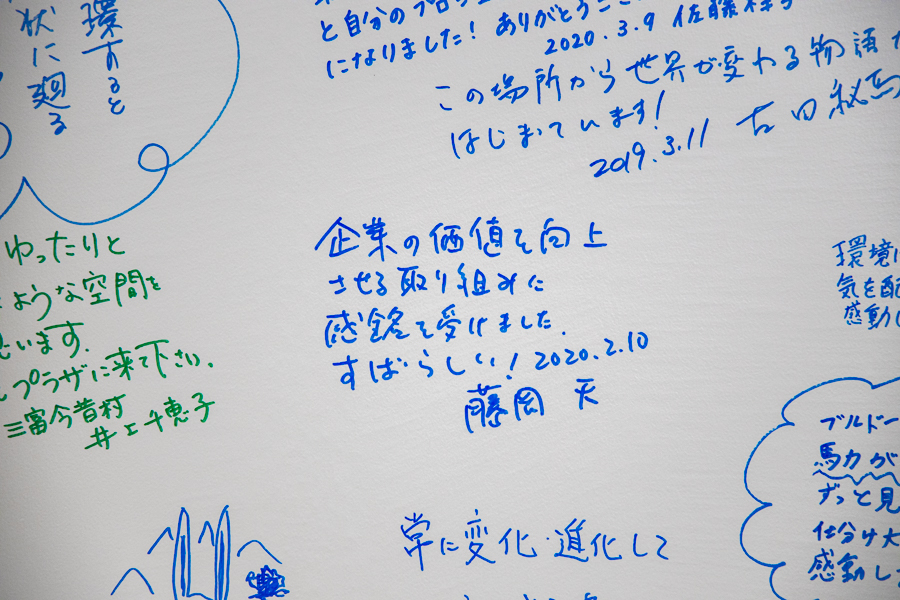 環すると
状に廻る
と自分の
になりました！ありがとう
2020.3.9 佐藤
この場所から世界が変わる物語が
はじまっています！
2019.3.11 古田秘馬
ゆったりと
ような空間を
います.
プラザに来て下さい.
三富今昔村
井上千恵子
企業の価値を向上
させる取り組みに
感銘を受けました.
すばらしい！2020.2.10
藤岡 天
環境に
気を配
感動し
常に変化・進化して
ブルドー
馬力が
ずっと見
仕分け大
感動し